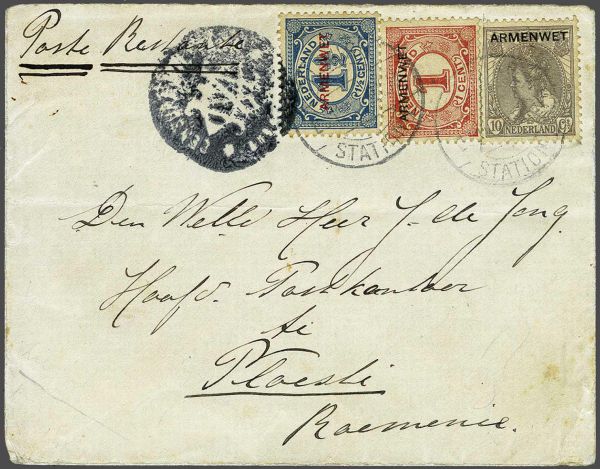 Poste Restante
NEDERLAND
1½
1½ CENT
ARMENWET
NEDERLAND
1
1 CENT
ARMENWET
ARMENWET
10 NEDERLAND Ct
STATIO
STATION
Den Welle Heer J. de Jong
Hoofd. Postkantoor
te
Ploesti
Roemenie.